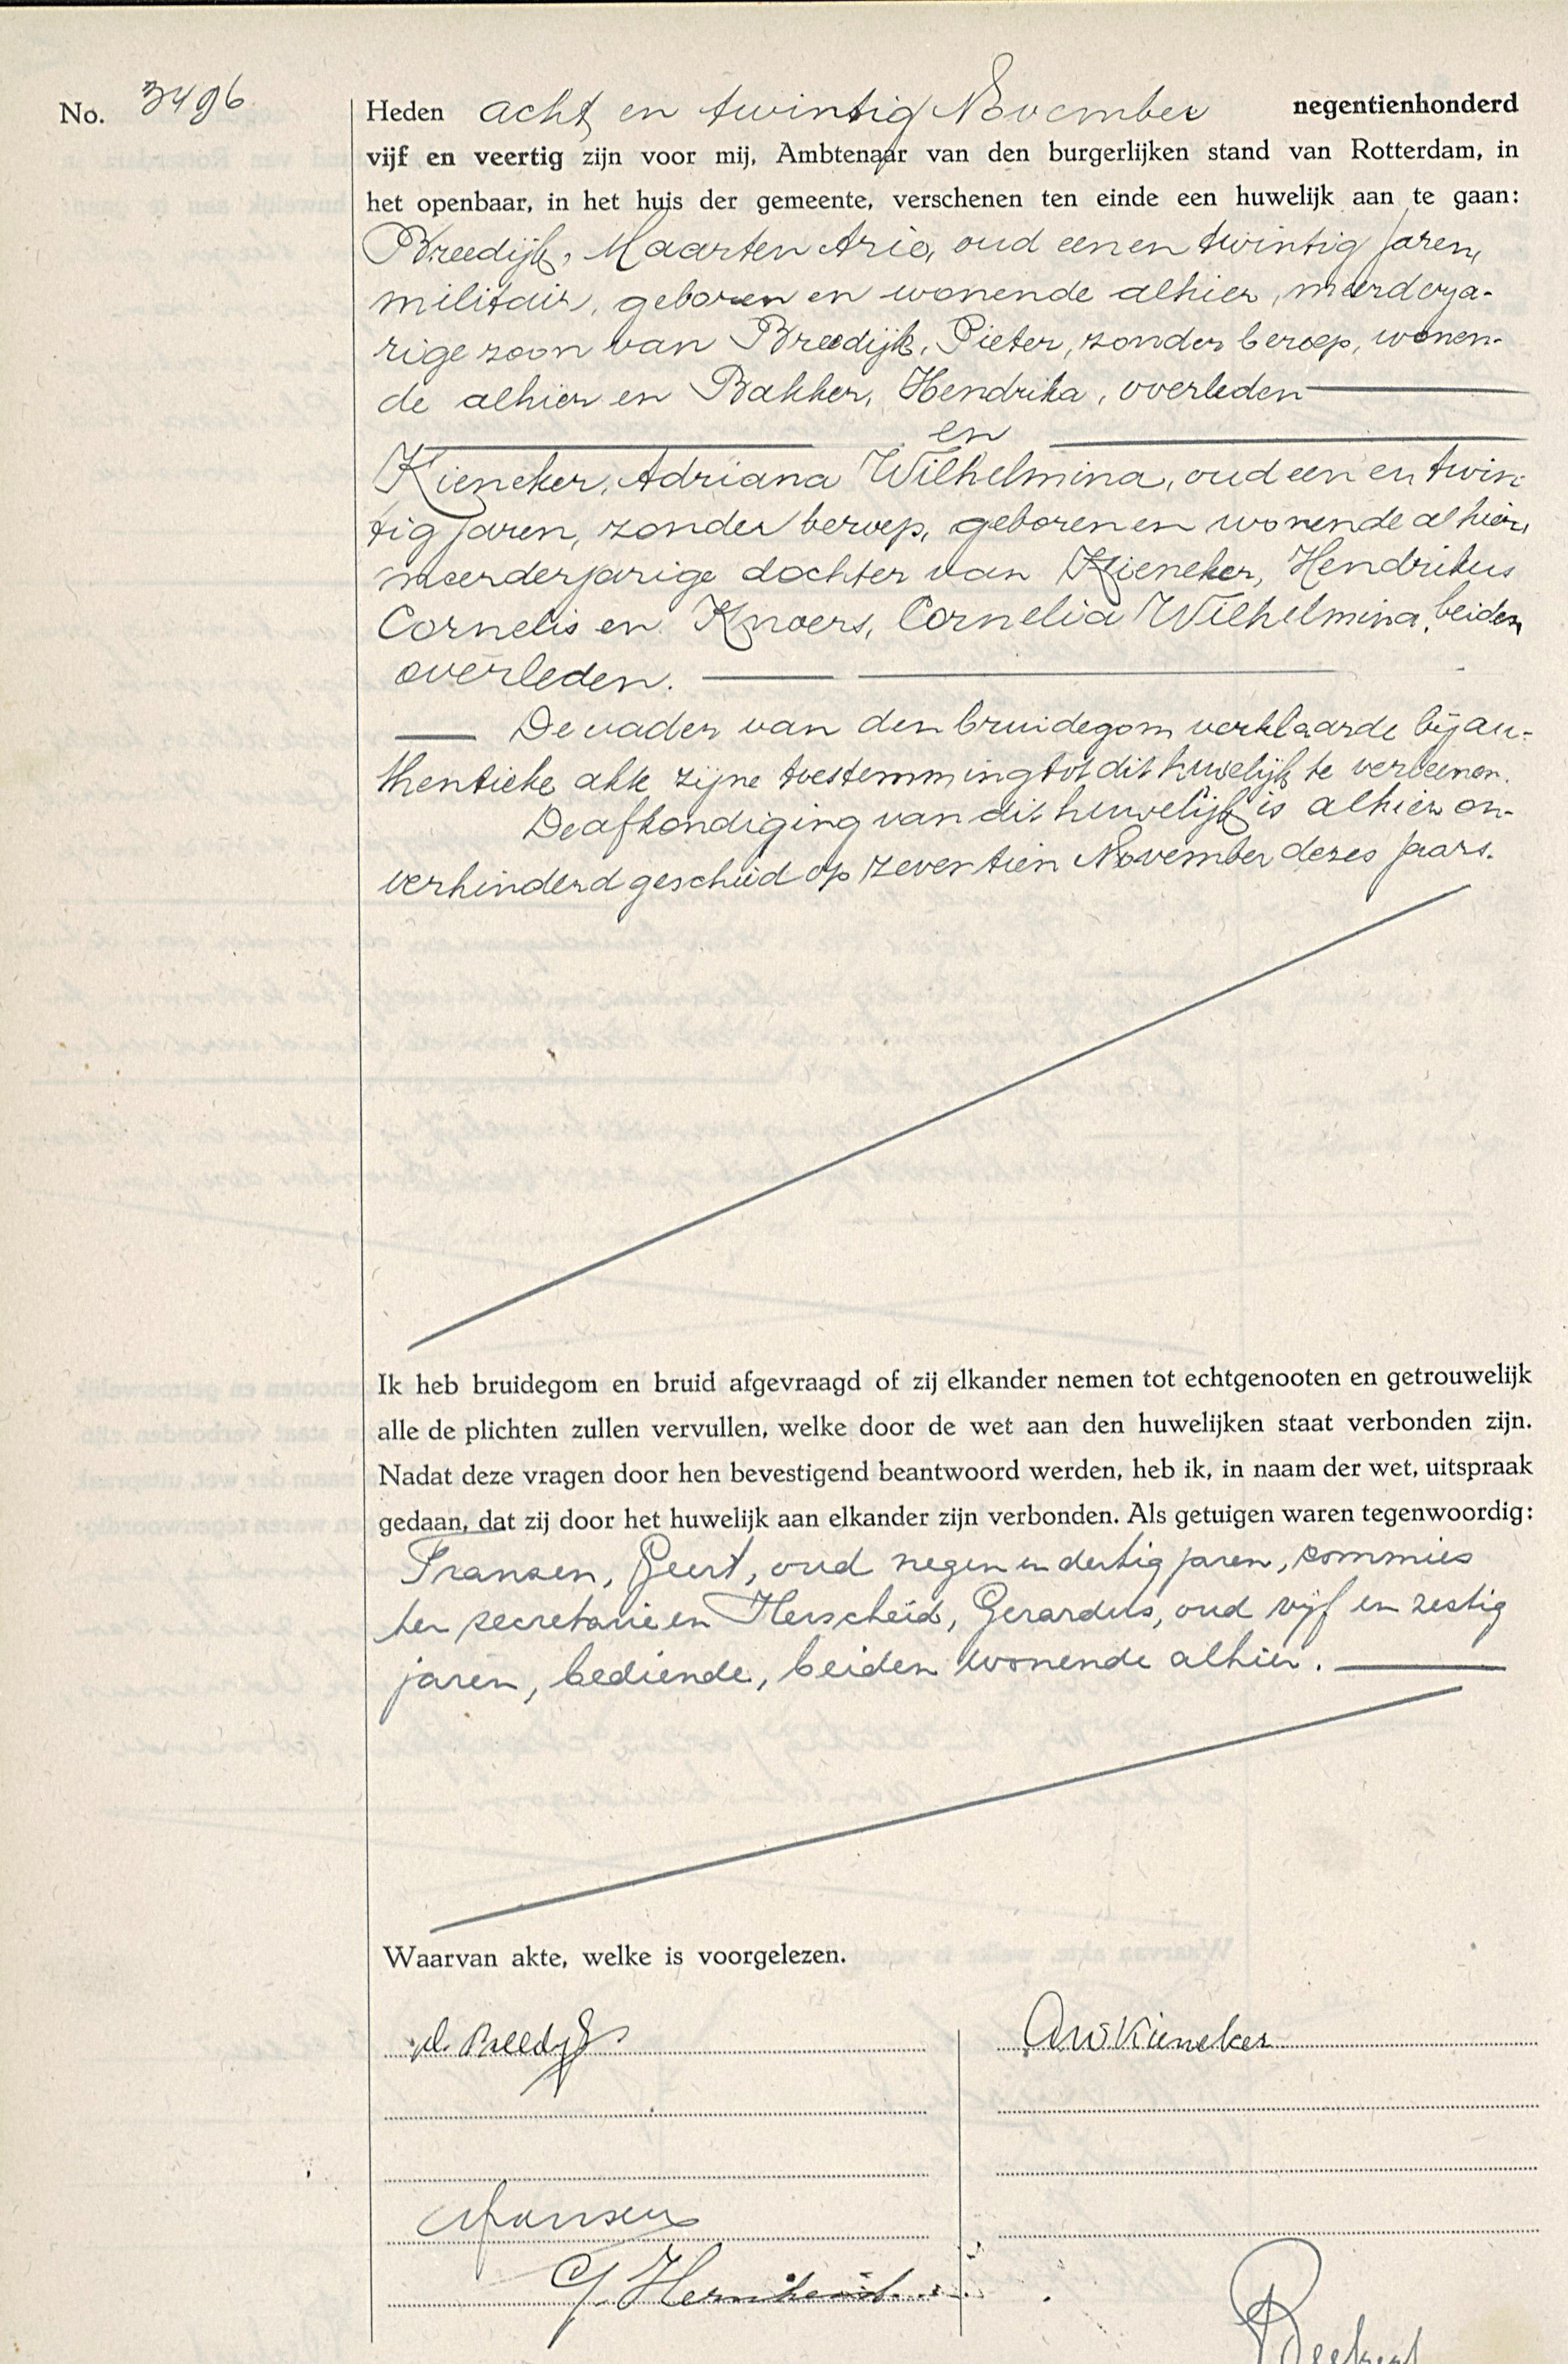 No. 3496
Heden acht en twintig November negentienhonderd
vijf en veertig zijn voor mij, Ambtenaar van den burgerlijken stand van Rotterdam, in
het openbaar, in het huis der gemeente, verschenen ten einde een huwelijk aan te gaan:
Breedijk, Maarten Arie, oud een en twintig jaren,
militair, geboren en wonende alhier, meerderja-
rige zoon van Breedijk, Pieter, zonder beroep, wonen-
de alhier en Bakker, Hendrika, overleden
en
Kieneker, Adriana Wilhelmina, oud een en twin-
tig jaren, zonder beroep, geboren en wonende alhier,
meerderjarige dochter van Kieneker, Hendrikus
Cornelis en Knoers, Cornelia Wilhelmina, beiden
overleden.
De vader van den bruidegom verklaarde bij au-
thentieke akte zijne toestemming tot dit huwelijk te verleenen.
De afkondiging van dit huwelijk is alhier on-
verhinderd geschied op zeventien November dezes jaars.
Ik heb bruidegom en bruid afgevraagd of zij elkander nemen tot echtgenooten en getrouwelijk
alle de plichten zullen vervullen, welke door de wet aan den huwelijken staat verbonden zijn.
Nadat deze vragen door hen bevestigend beantwoord werden, heb ik, in naam der wet, uitspraak
gedaan, dat zij door het huwelijk aan elkander zijn verbonden. Als getuigen waren tegenwoordig:
Fransen, Geert, oud negen en dertig jaren, commies
ter secretarie en Herscheid, Gerardus, oud vijf en zestig
jaren, bediende, beiden wonende alhier.
Waarvan akte, welke is voorgelezen.
M. Breedijk
AW Kieneker
Fransen
G. Herscheid